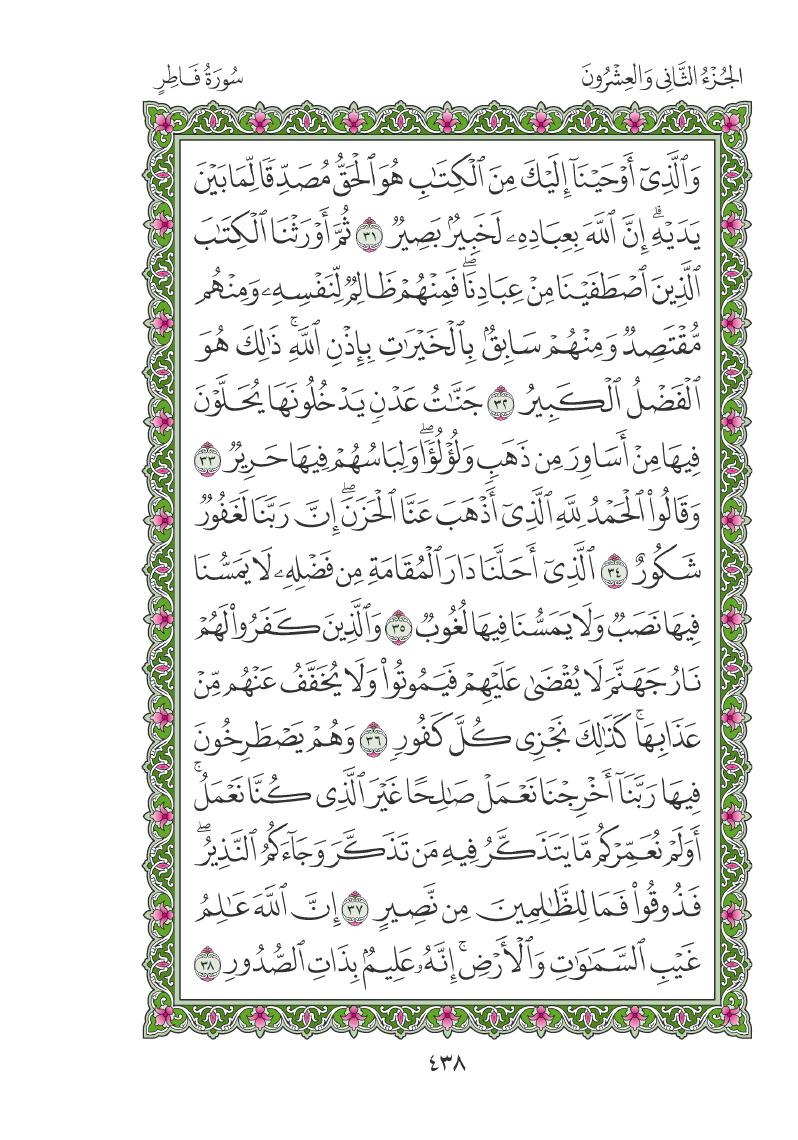 الجُزْءُ الثَّانِي وَالعِشْرُونَ
سُورَةُ فَاطِرٍ
وَٱلَّذِىٓ أَوْحَيْنَآ إِلَيْكَ مِنَ ٱلْكِتَٰبِ هُوَ ٱلْحَقُّ مُصَدِّقًا لِّمَا بَيْنَ
يَدَيْهِۗ إِنَّ ٱللَّهَ بِعِبَادِهِۦ لَخَبِيرُۢ بَصِيرٌ ٣١ ثُمَّ أَوْرَثْنَا ٱلْكِتَٰبَ
ٱلَّذِينَ ٱصْطَفَيْنَا مِنْ عِبَادِنَاۖ فَمِنْهُمْ ظَالِمٌ لِّنَفْسِهِۦ وَمِنْهُم
مُّقْتَصِدٌ وَمِنْهُمْ سَابِقُۢ بِٱلْخَيْرَٰتِ بِإِذْنِ ٱللَّهِۚ ذَٰلِكَ هُوَ
ٱلْفَضْلُ ٱلْكَبِيرُ ٣٢ جَنَّٰتُ عَدْنٍ يَدْخُلُونَهَا يُحَلَّوْنَ
فِيهَا مِنْ أَسَاوِرَ مِن ذَهَبٍ وَلُؤْلُؤًاۖ وَلِبَاسُهُمْ فِيهَا حَرِيرٌ ٣٣
وَقَالُوا۟ ٱلْحَمْدُ لِلَّهِ ٱلَّذِىٓ أَذْهَبَ عَنَّا ٱلْحَزَنَۖ إِنَّ رَبَّنَا لَغَفُورٌ
شَكُورٌ ٣٤ ٱلَّذِىٓ أَحَلَّنَا دَارَ ٱلْمُقَامَةِ مِن فَضْلِهِۦ لَا يَمَسُّنَا
فِيهَا نَصَبٌ وَلَا يَمَسُّنَا فِيهَا لُغُوبٌ ٣٥ وَٱلَّذِينَ كَفَرُوا۟ لَهُمْ
نَارُ جَهَنَّمَ لَا يُقْضَىٰ عَلَيْهِمْ فَيَمُوتُوا۟ وَلَا يُخَفَّفُ عَنْهُم مِّنْ
عَذَابِهَاۚ كَذَٰلِكَ نَجْزِى كُلَّ كَفُورٍ ٣٦ وَهُمْ يَصْطَرِخُونَ
فِيهَا رَبَّنَآ أَخْرِجْنَا نَعْمَلْ صَٰلِحًا غَيْرَ ٱلَّذِى كُنَّا نَعْمَلُۚ
أَوَلَمْ نُعَمِّرْكُم مَّا يَتَذَكَّرُ فِيهِ مَن تَذَكَّرَ وَجَآءَكُمُ ٱلنَّذِيرُۖ
فَذُوقُوا۟ فَمَا لِلظَّٰلِمِينَ مِن نَّصِيرٍ ٣٧ إِنَّ ٱللَّهَ عَٰلِمُ
غَيْبِ ٱلسَّمَٰوَٰتِ وَٱلْأَرْضِۚ إِنَّهُۥ عَلِيمُۢ بِذَاتِ ٱلصُّدُورِ ٣٨
٤٣٨